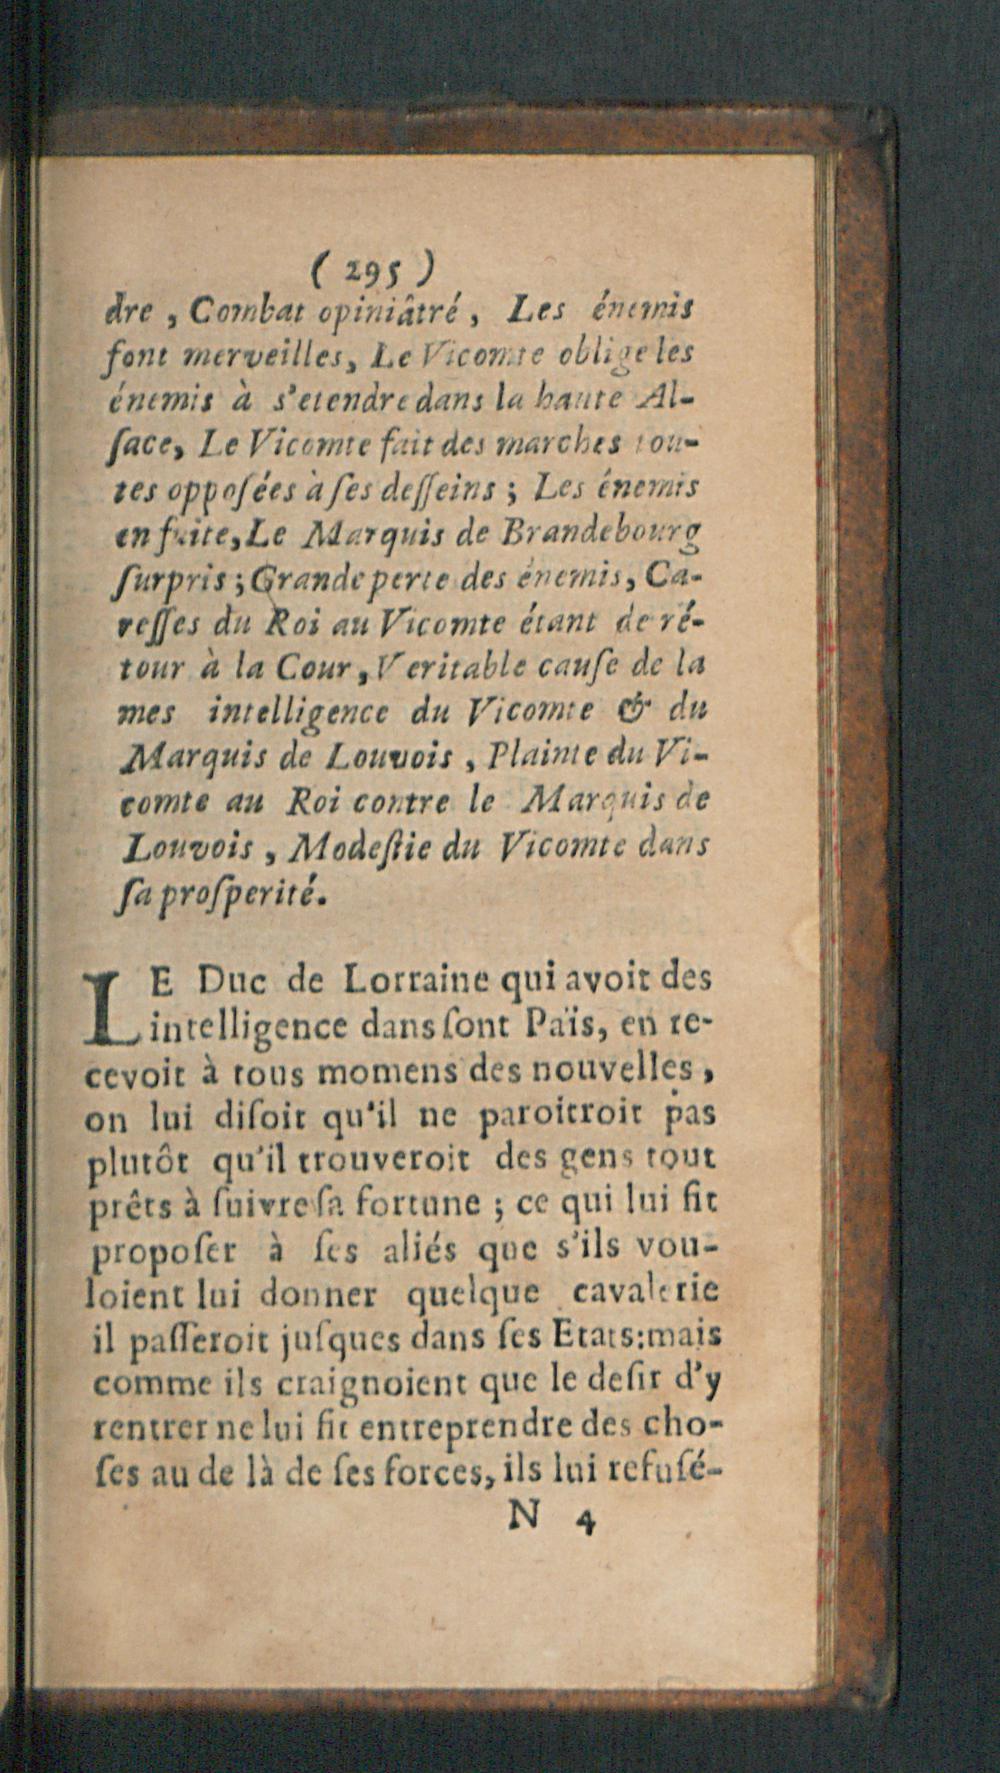 ( 295 )
dre , Combat opiniâtré , Les énemis
font merveilles, Le Vicomte oblige les
énemis à s'etendre dans la haute Al-
ſace, Le Vicomte fait des marches tou-
tes oppoſées à ſes deſſeins ; Les énemis
en fuite, Le Marquis de Brandebourg
ſurpris ; Grande perte des énemis, Ca-
reſſes du Roi au Vicomte étant de ré-
tour à la Cour, Veritable cauſe de la
mes intelligence du Vicomte & du
Marquis de Louvois , Plainte du Vi-
comte au Roi contre le Marquis de
Louvois , Modeſtie du Vicomte dans
ſa proſperité.
LE Duc de Lorraine qui avoit des
intelligence dans ſont Païs, en re-
cevoit à tous momens des nouvelles ,
on lui diſoit qu'il ne paroitroit pas
plutôt qu'il trouveroit des gens tout
prêts à ſuivre ſa fortune ; ce qui lui fit
propoſer à ſes aliés que s'ils vou-
loient lui donner quelque cavalerie
il paſſeroit juſques dans ſes Etats: mais
comme ils craignoient que le deſir d'y
rentrer ne lui fit entreprendre des cho-
ſes au de là de ſes forces, ils lui refuſé-
N 4